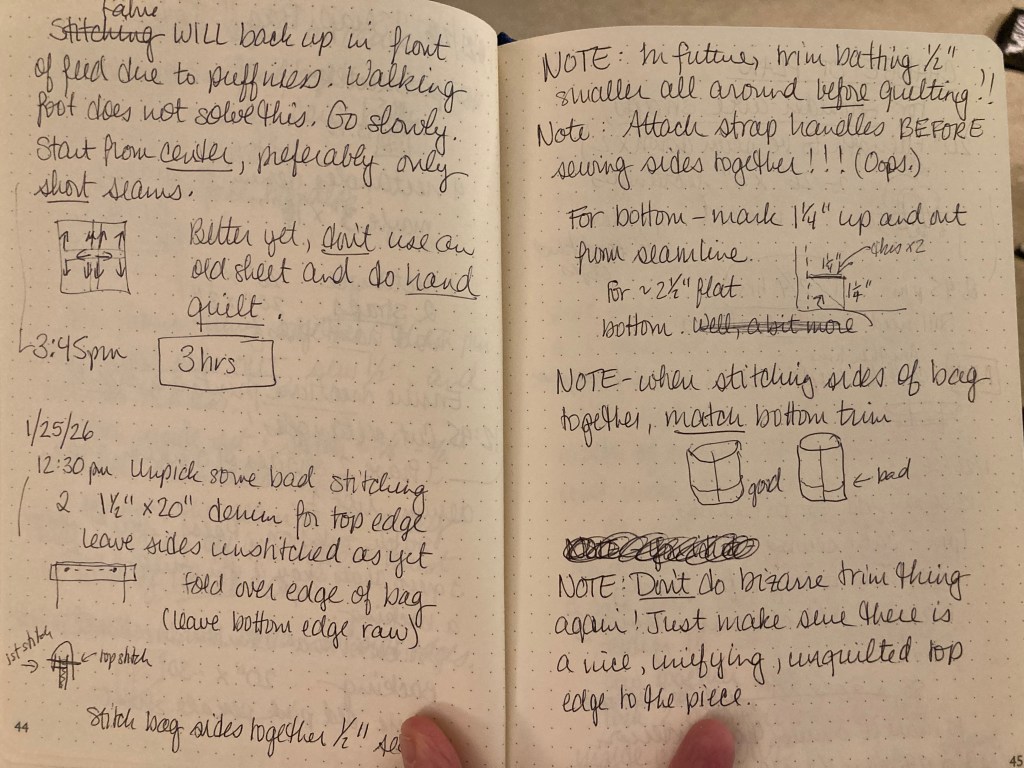 fabric
Stitching WILL back up in front
of feed due to puffiness. Walking
foot does not solve this. Go slowly.
Start from center, preferably only
short seams.
Better yet, don't use an
old sheet and do hand
quilt.
3:45pm
3 hrs
1/25/26
12:30pm Unpick some bad stitching
2 1½" x 20" denim for top edge
leave sides unstitched as yet
Fold over edge of bag
(leave bottom edge raw)
1st stitch
topstitch
Stitch bag sides together ½"
44
NOTE: In future, trim bathing ½"
smaller all around before quilting!!
Note: Attach strap handles BEFORE
sewing sides together!!! (Oops.)
For bottom - mark 1¼" up and out
from seamline.
this x2
1¼"
1¼"
For ~2½" flat
bottom. Well, a bit more
NOTE - when stitching sides of bag
together, match bottom trim
good
bad
NOTE: Don't do bizarre trim thing
again! Just make sure there is
a nice, unifying, unquilted top
edge to the piece.
45